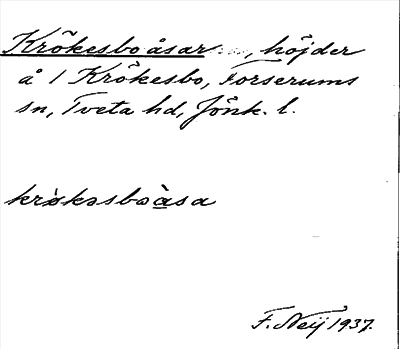 Krökesboåsar, höjder
å 1 Krökesbo, Forserums
sn, Tveta hd, Jönk. l.
krø̀kəsboàsa
F. Neij 1937.